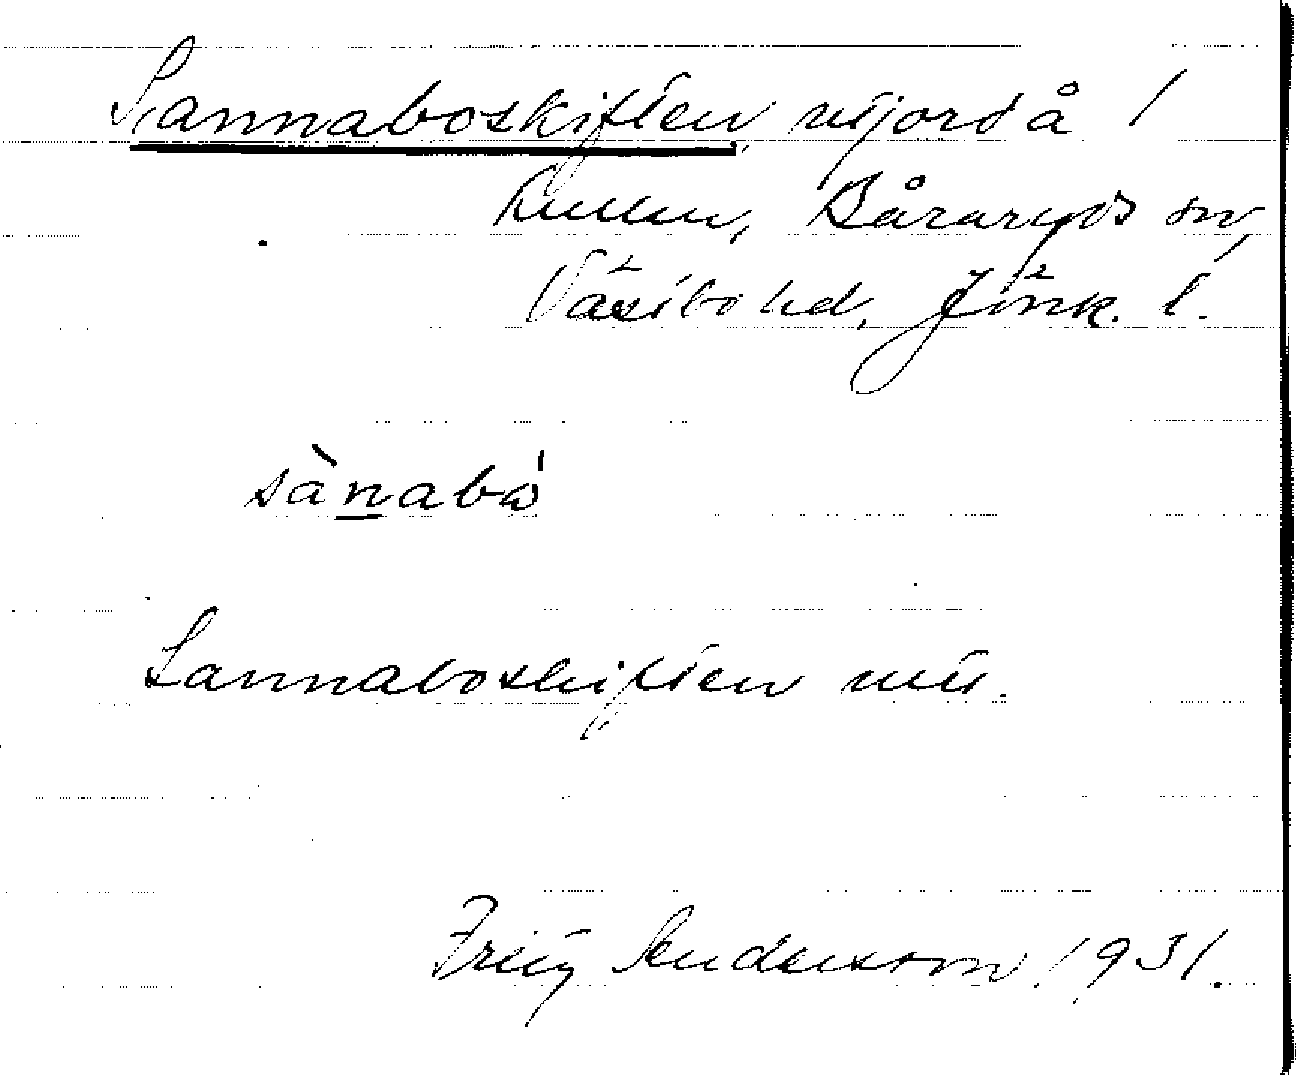 Sannaboskiften, utjord å 1
Kullen, Båraryds sn,
Västbo hd, Jönk. l.
sànabó
Sannaboskiften utj.
Fritz Andersson 1931.